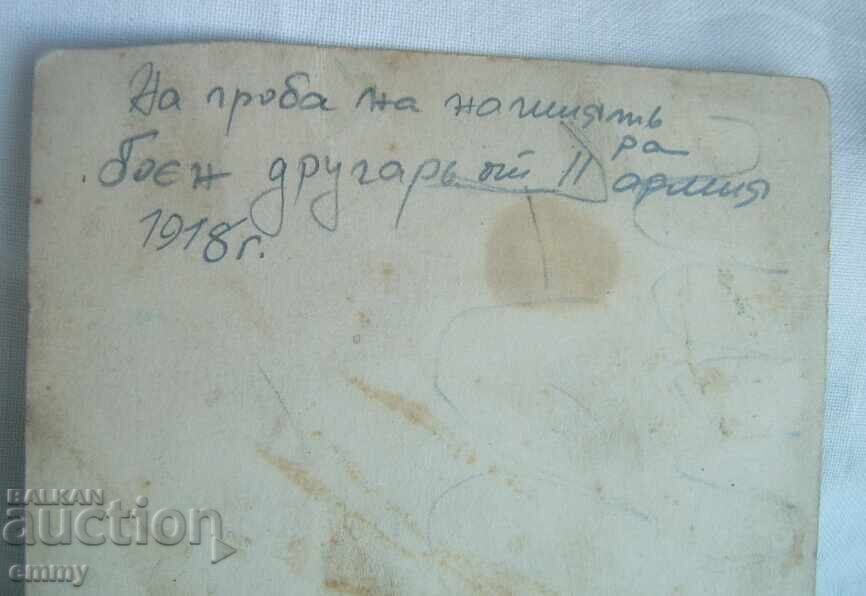 На гроба на нашиятъ
боен другарь от II ра армия
1918 г.
BALKAN
auction
emmy